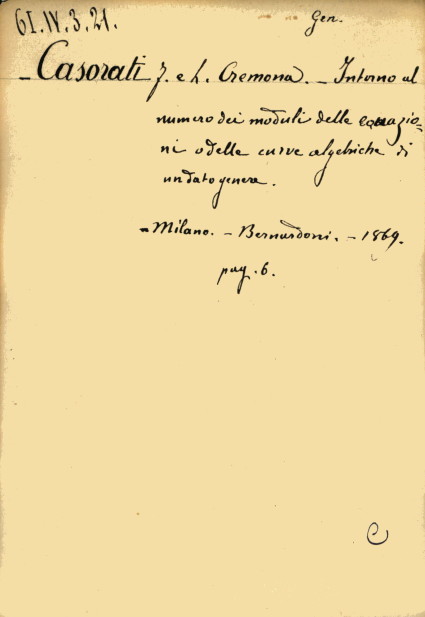 61.IV.3.21.
Gen.
- Casorati F. e L. Cremona. - Intorno al
numero dei moduli delle equazio-
ni o delle curve algebriche di
un dato genere.
- Milano. - Bernardoni. - 1869.
pag. 6.
C